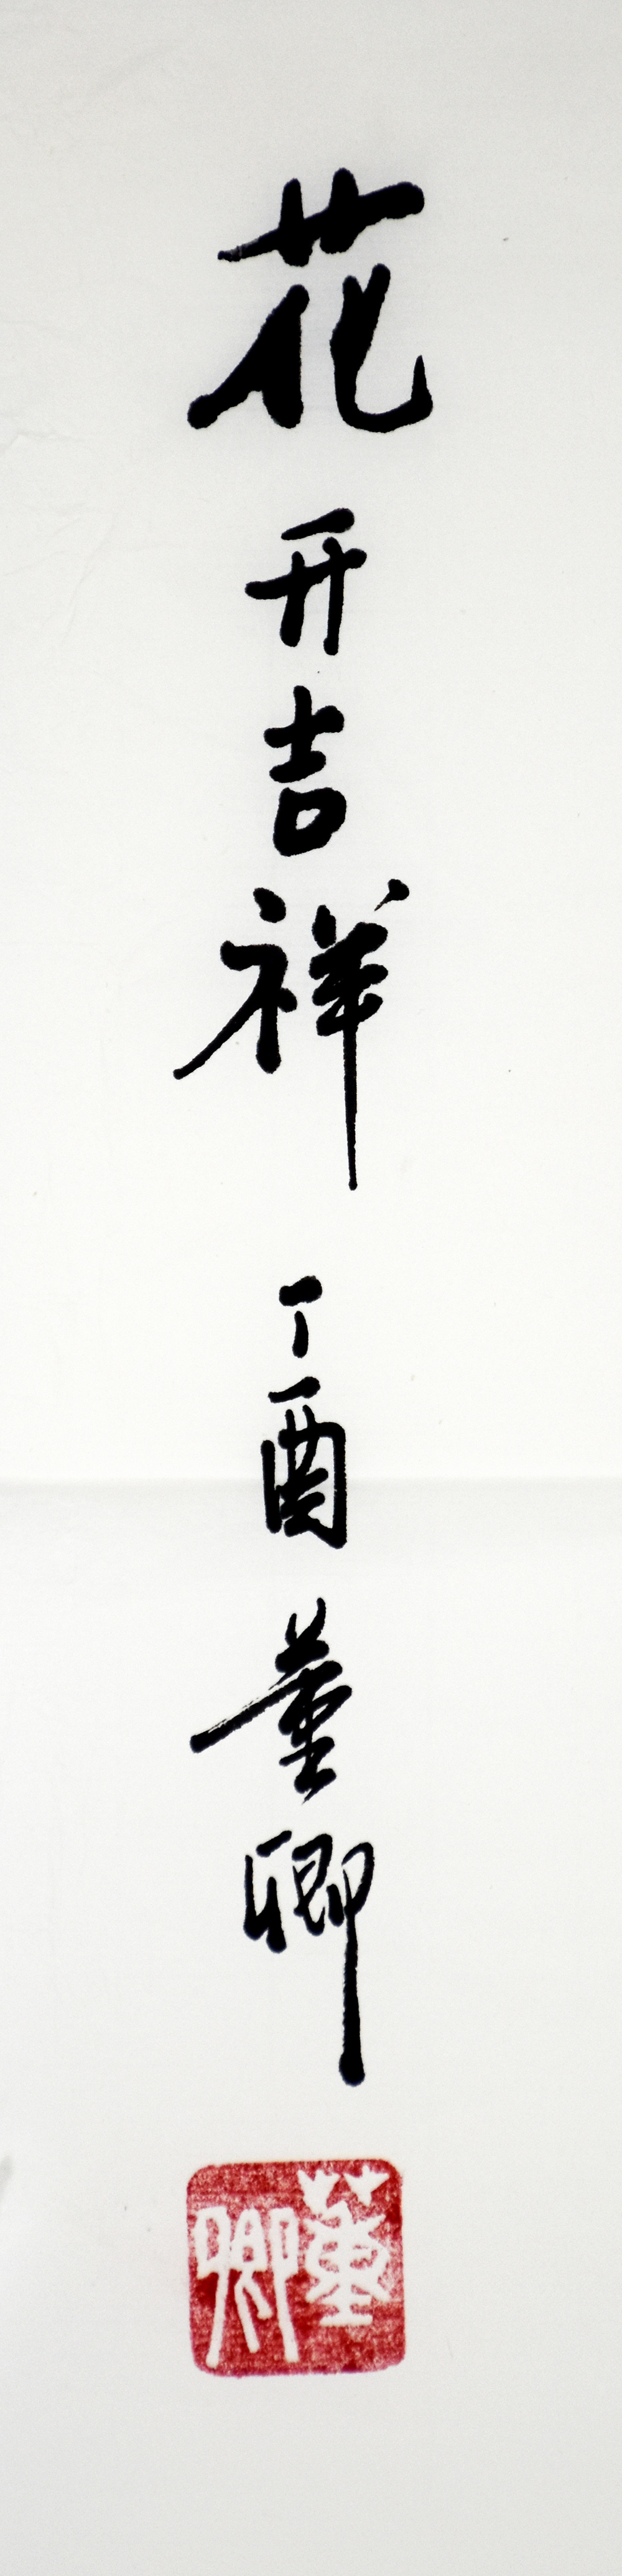 花开吉祥 丁酉 董卿
董卿